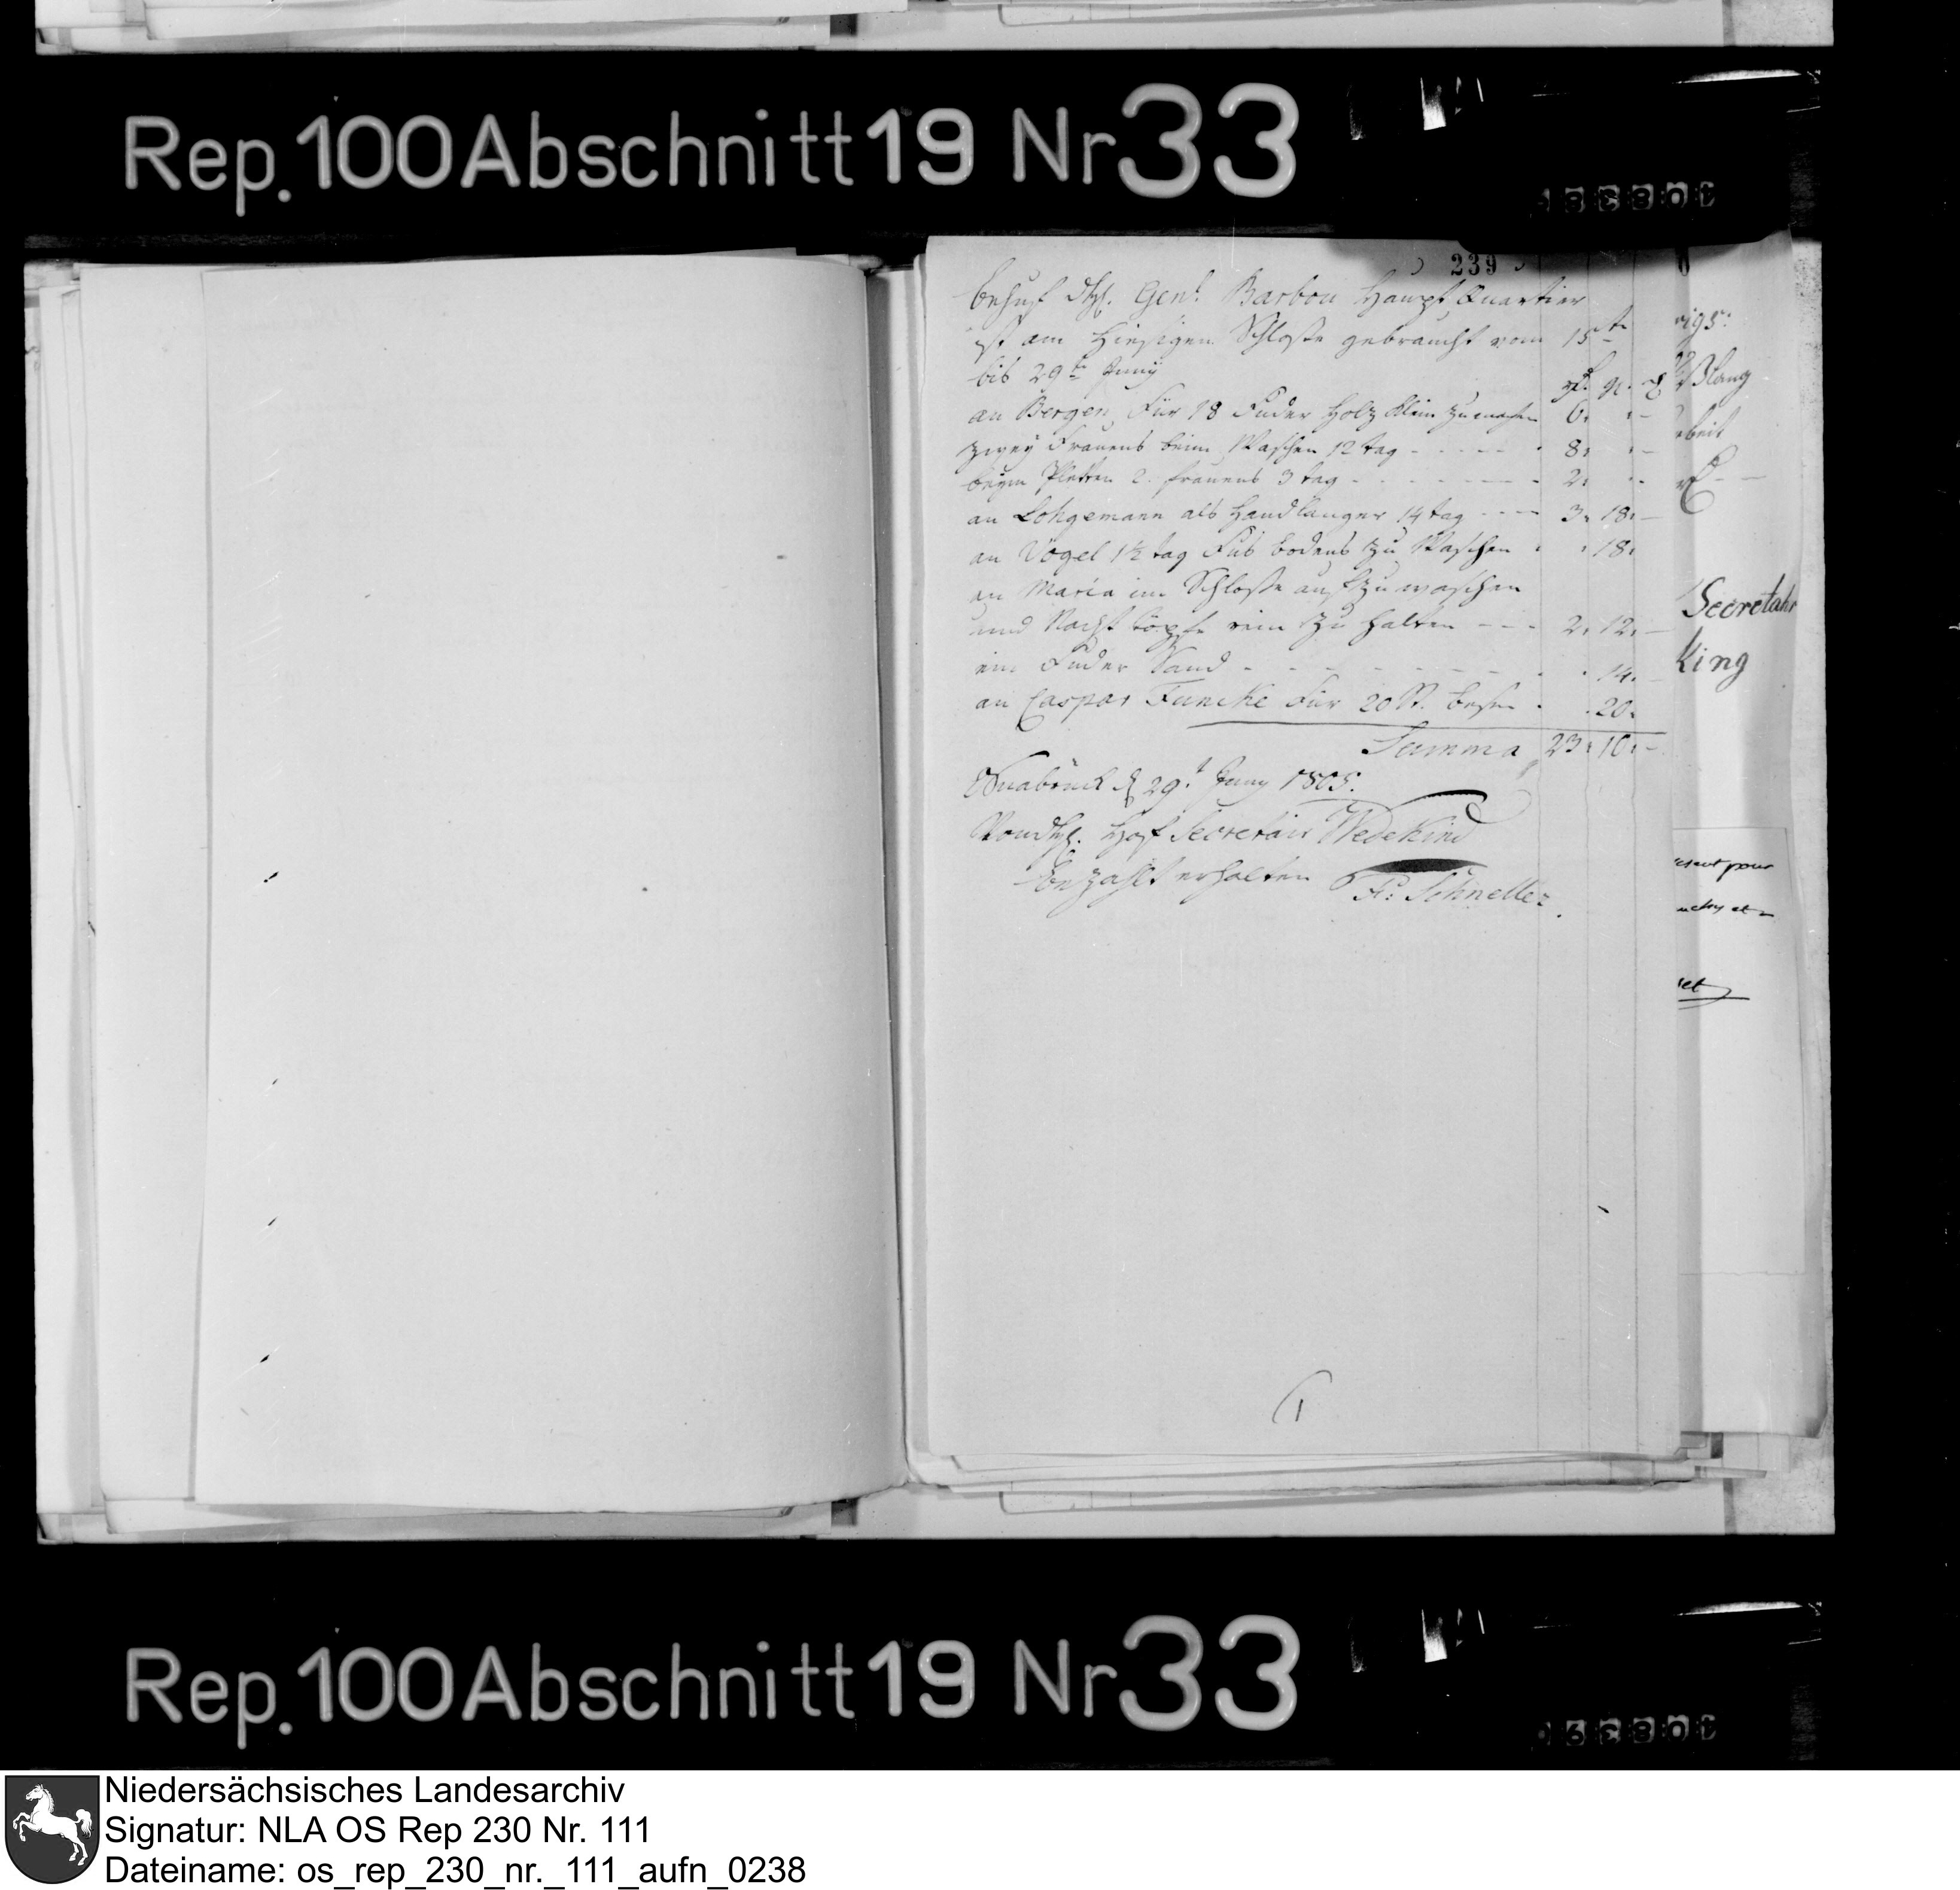 Rep. 100 Abschnitt 19 Nr 33
239
behuf H. Genl. Barbou Haupt Quartier
ist am hiesigen Schloße gebraucht vom 15t
bis 29t Juny
an Bergen, Für 18 Fuder Holz klein zu machen 6.
zwey Frauens beim Waschen 12 tag - - - - - 8.
beym Pletten 2. frauens 3 tag - - - - - - - 2.
an Lohgemann als Handlanger 14 tag - - - 3. 18. -
an Vogel 1½ tag Fus bodens zu Waschen . . 18.
an Maria im Schloße aufzuwaschen
und Nacht töpfe rein zu halten - - - 2. 12. -
ein Fuder Sand - - - - - - - - . . 14. -
an Caspar Funcke Für 20 St. besen . . 20.
Summa 23. 10. -
Osnabrück d 29t Juny 1805.
Von H. Hof Secretair Wedekind
bezahlt erhalten Fr: Schneller.
1
Secretair
King
Rep. 100 Abschnitt 19 Nr 33
Niedersächsisches Landesarchiv
Signatur: NLA OS Rep 230 Nr. 111
Dateiname: os_rep_230_nr._111_aufn_0238